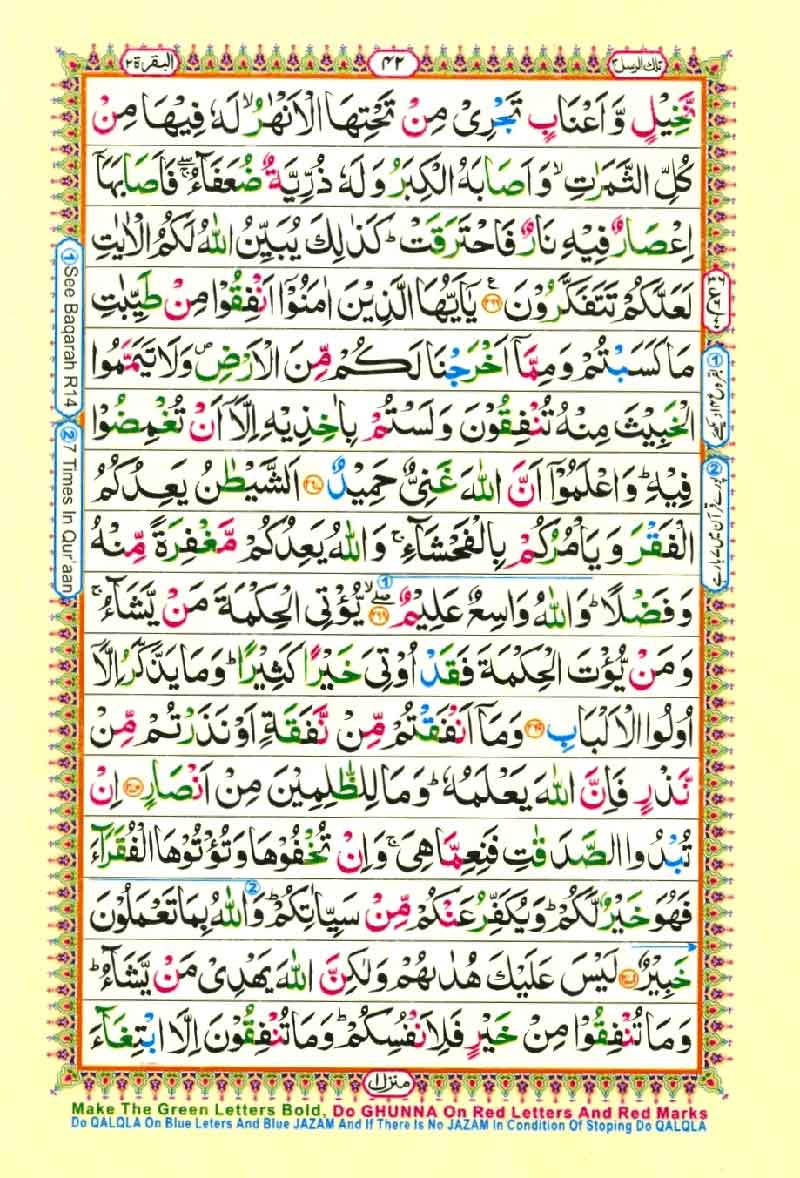 تلك الرسل ٣
٤٢
البقرة ٢
نَّخِيْلٍ وَّاَعْنَابٍ تَجْرِىْ مِنْ تَحْتِهَا الْاَنْهٰرُ ۙ لَهٗ فِيْهَا مِنْ
كُلِّ الثَّمَرٰتِ ۙ وَاَصَابَهُ الْكِبَرُ وَلَهٗ ذُرِّيَّةٌ ضُعَفَآءُ ۖۚ فَاَصَابَهَاۤ
اِعْصَارٌ فِيْهِ نَارٌ فَاحْتَرَقَتْ ؕ كَذٰلِكَ يُبَيِّنُ اللّٰهُ لَكُمُ الْاٰيٰتِ
لَعَلَّكُمْ تَتَفَكَّرُوْنَ ﴿۲۶۶﴾ يٰۤاَيُّهَا الَّذِيْنَ اٰمَنُوْۤا اَنْفِقُوْا مِنْ طَيِّبٰتِ
مَا كَسَبْتُمْ وَمِمَّاۤ اَخْرَجْنَا لَكُمْ مِّنَ الْاَرْضِ ۪ وَلَا تَيَمَّمُوا
الْخَبِيْثَ مِنْهُ تُنْفِقُوْنَ وَلَسْتُمْ بِاٰخِذِيْهِ اِلَّاۤ اَنْ تُغْمِضُوْا
فِيْهِ ؕ وَاعْلَمُوْۤا اَنَّ اللّٰهَ غَنِىٌّ حَمِيْدٌ ﴿۲۶۷﴾ اَلشَّيْطٰنُ يَعِدُكُمُ
الْفَقْرَ وَيَاْمُرُكُمْ بِالْفَحْشَآءِ ۚ وَاللّٰهُ يَعِدُكُمْ مَّغْفِرَةً مِّنْهُ
وَفَضْلًا ؕ وَاللّٰهُ وَاسِعٌ عَلِيْمٌ ﴿۲۶۸﴾ ۖۙ ① يُّؤْتِى الْحِكْمَةَ مَنْ يَّشَآءُ ۚ
وَمَنْ يُّؤْتَ الْحِكْمَةَ فَقَدْ اُوْتِىَ خَيْرًا كَثِيْرًا ؕ وَمَا يَذَّكَّرُ اِلَّاۤ
اُولُوا الْاَلْبَابِ ﴿۲۶۹﴾ وَمَاۤ اَنْفَقْتُمْ مِّنْ نَّفَقَةٍ اَوْ نَذَرْتُمْ مِّنْ
نَّذْرٍ فَاِنَّ اللّٰهَ يَعْلَمُهٗ ؕ وَمَا لِلظّٰلِمِيْنَ مِنْ اَنْصَارٍ ﴿۲۷۰﴾ اِنْ
تُبْدُوا الصَّدَقٰتِ فَنِعِمَّا هِىَ ۚ وَاِنْ تُخْفُوْهَا وَتُؤْتُوْهَا الْفُقَرَآءَ
فَهُوَ خَيْرٌ لَّكُمْ ؕ وَيُكَفِّرُ عَنْكُمْ مِّنْ سَيِّاٰتِكُمْ ؕ ② وَاللّٰهُ بِمَا تَعْمَلُوْنَ
خَبِيْرٌ ﴿۲۷۱﴾ لَيْسَ عَلَيْكَ هُدٰىهُمْ وَلٰكِنَّ اللّٰهَ يَهْدِىْ مَنْ يَّشَآءُ ؕ
وَمَا تُنْفِقُوْا مِنْ خَيْرٍ فَلِاَنْفُسِكُمْ ؕ وَمَا تُنْفِقُوْنَ اِلَّا ابْتِغَآءَ
منزل ١
① See Baqarah R14
② 7 Times In Qur'aan
② پورے قرآن میں ۷ بار ہے
Make The Green Letters Bold, Do GHUNNA On Red Letters And Red Marks
Do QALQLA On Blue Leters And Blue JAZAM And If There Is No JAZAM In Condition Of Stoping Do QALQLA